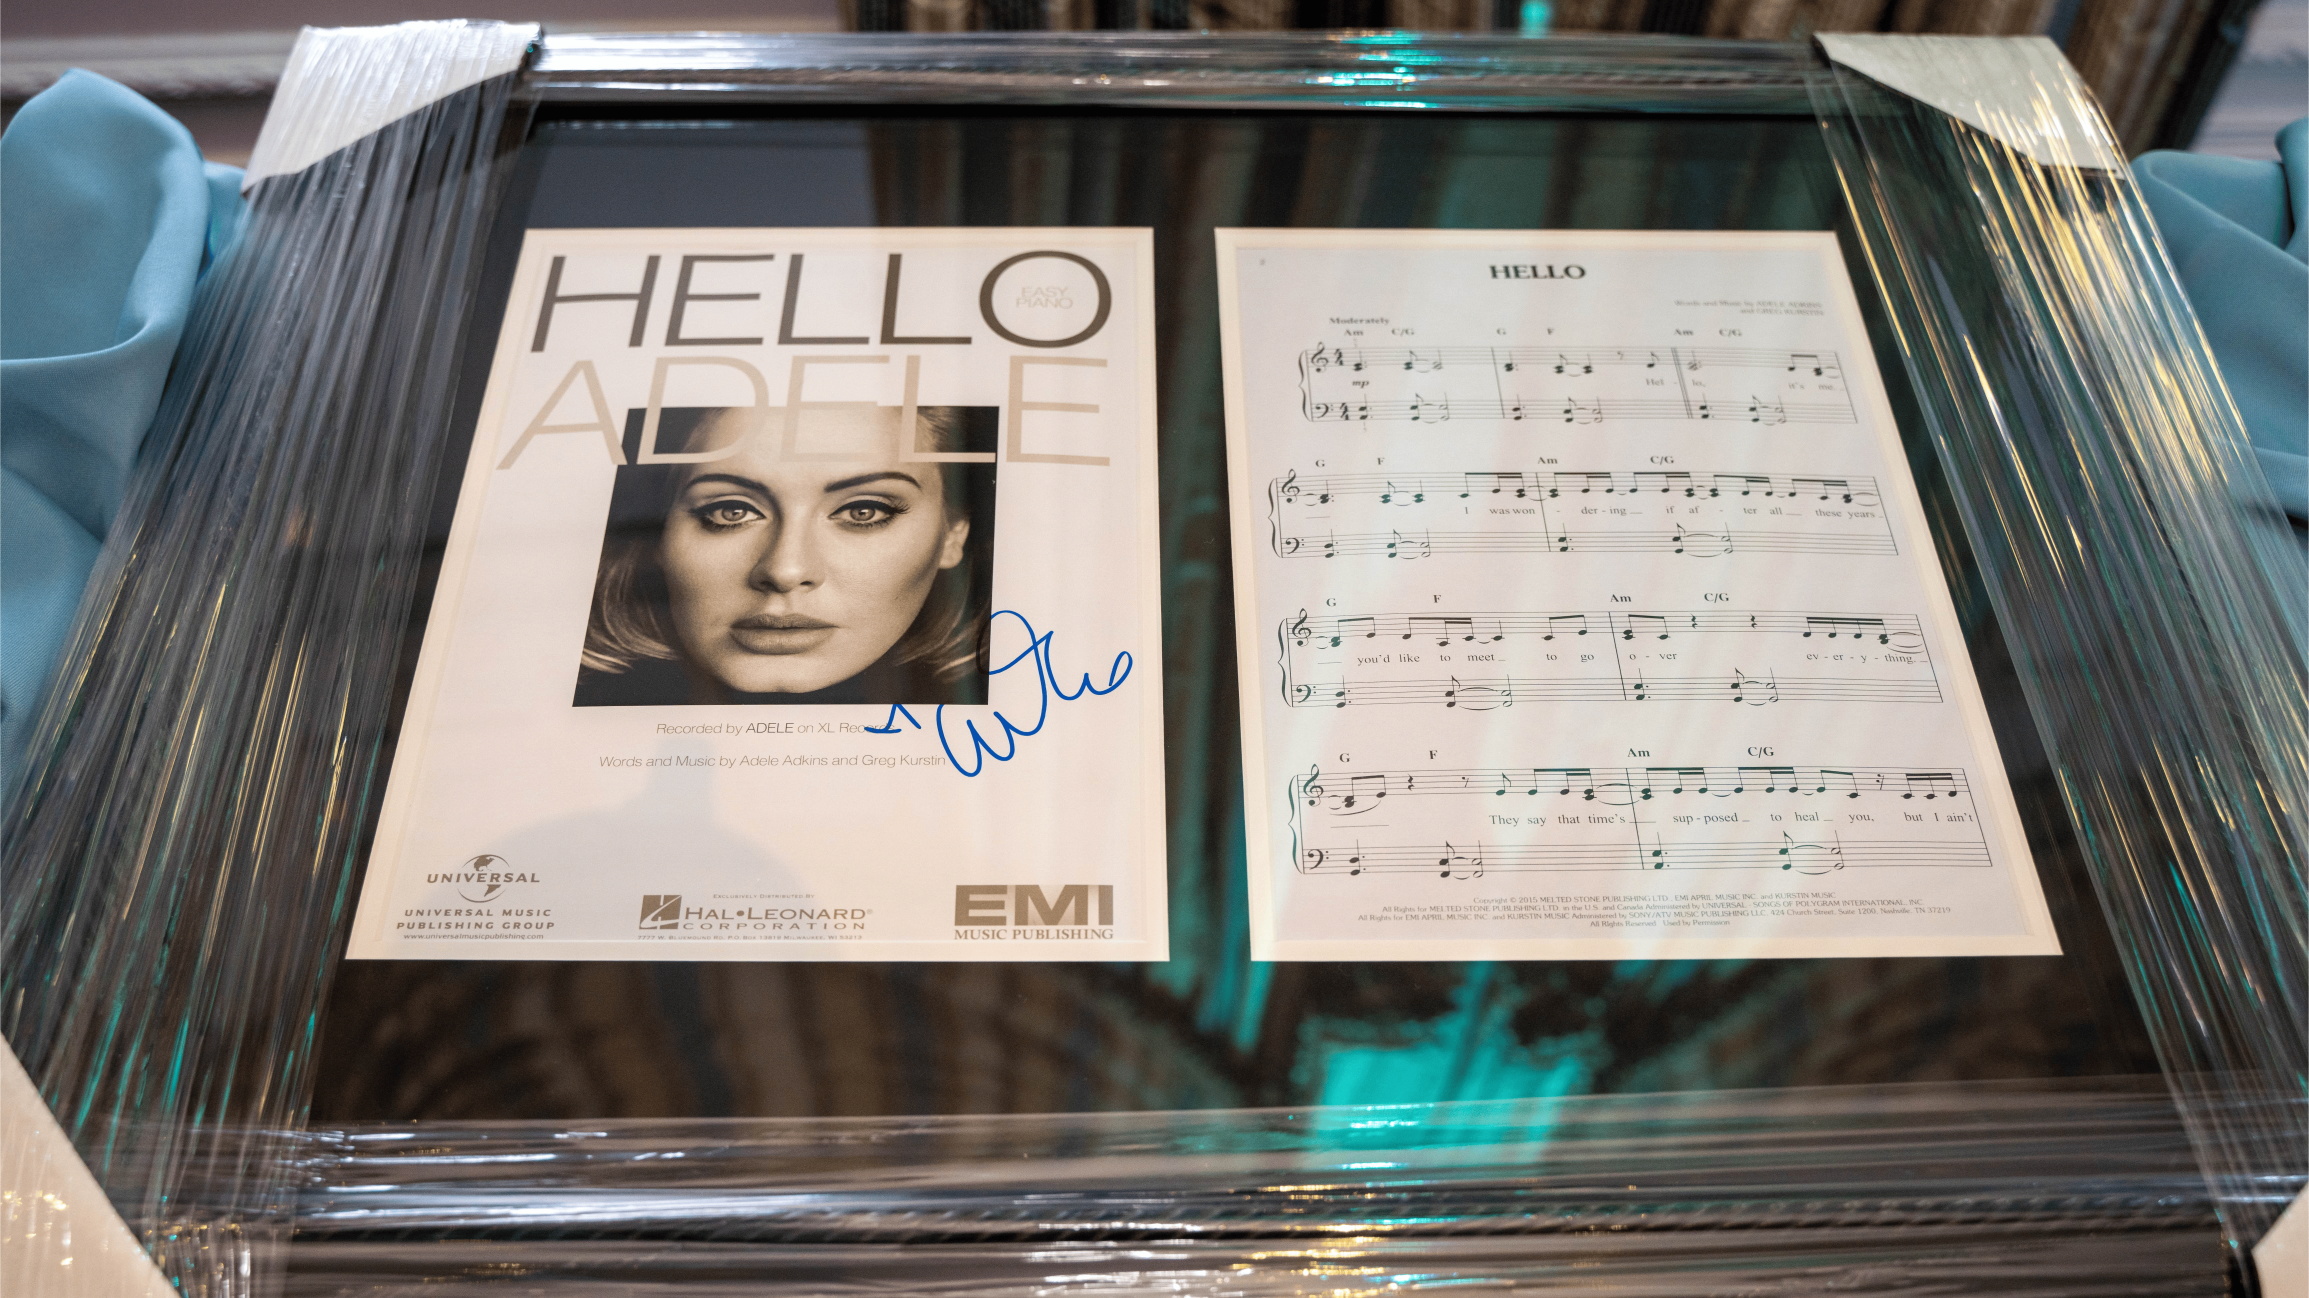 HELLO
EASY
PIANO
ADELE
Recorded by ADELE on XL Records
Words and Music by Adele Adkins and Greg Kurstin
UNIVERSAL
UNIVERSAL MUSIC
PUBLISHING GROUP
www.universalmusicpublishing.com
EXCLUSIVELY DISTRIBUTED BY
HAL•LEONARD®
CORPORATION
7777 W. BLUEMOUND RD. P.O. BOX 13819 MILWAUKEE, WI 53213
EMI
MUSIC PUBLISHING
HELLO
Words and Music by ADELE ADKINS
and GREG KURSTIN
Moderately
Am C/G G F Am C/G
mp
Hel - lo, it's me.
G F Am C/G
I was won - der - ing if af - ter all these years
G F Am C/G
you'd like to meet to go o - ver ev - er - y - thing.
G F Am C/G
They say that time's sup - posed to heal you, but I ain't
Copyright © 2015 MELTED STONE PUBLISHING LTD., EMI APRIL MUSIC INC. and KURSTIN MUSIC
All Rights for MELTED STONE PUBLISHING LTD. in the U.S. and Canada Administered by UNIVERSAL - SONGS OF POLYGRAM INTERNATIONAL, INC.
All Rights for EMI APRIL MUSIC INC. and KURSTIN MUSIC Administered by SONY/ATV MUSIC PUBLISHING LLC, 424 Church Street, Suite 1200, Nashville, TN 37219
All Rights Reserved Used by Permission